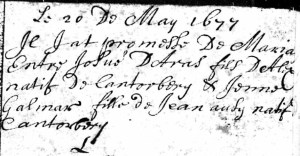 Le 20 De May 1677
Il J at promesse De Maria
Entre Josué Detras fils D
natif de Cantorbery & Jenne
Galmar fille de Jean ausy natif
Cantorbery